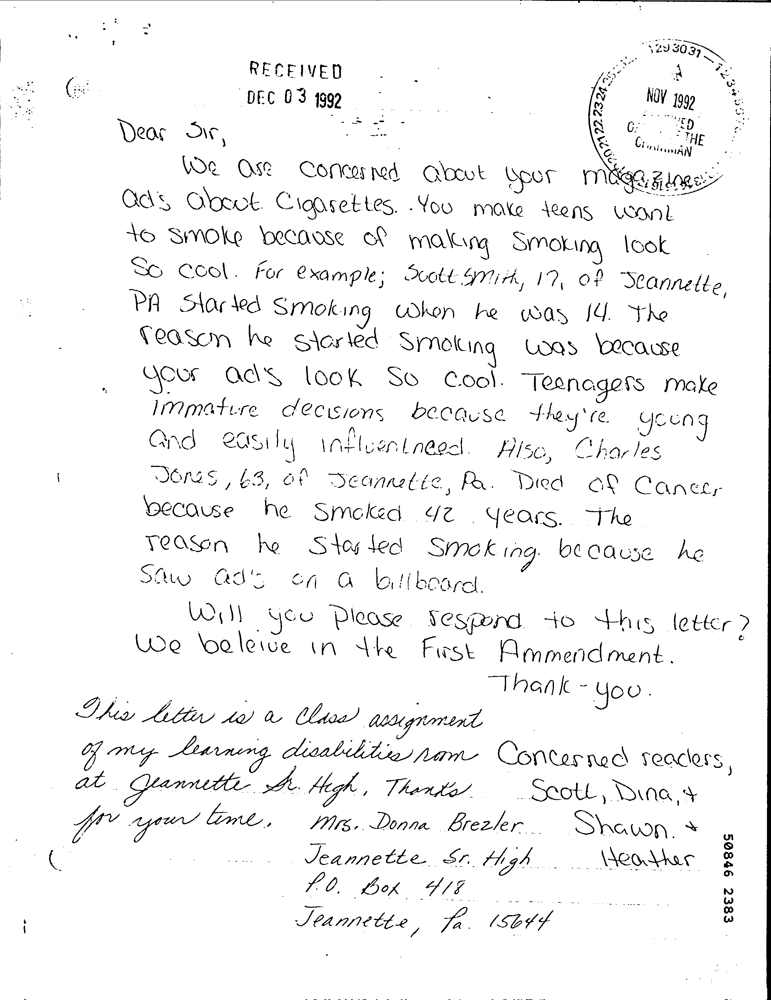 RECEIVED
DEC 03 1992
NOV 1992
THE
Dear Sir,
We are concerned about your magazine
ad's about Cigarettes. You make teens want
to smoke because of making smoking look
so cool. For example; Scott Smith, 17, of Jeannette,
PA started smoking when he was 14. The
reason he started smoking was because
your ad's look so cool. Teenagers make
immature decisions because they're young
and easily influentnced. Also, Charles
Jones, 63, of Jeannette, Pa. Died of Cancer
because he smoked 42 years. The
reason he started smoking because he
saw ad's on a billboard.
Will you please respond to this letter?
We beleive in the First Ammendment.
Thank-you.
This letter is a class assignment
of my learning disabilities room
at Jeannette Sr. High. Thanks
for your time.
Concerned readers,
Scott, Dina, +
Shawn. +
Heather
Mrs. Donna Brezler
Jeannette Sr. High
P.O. Box 418
Jeannette, Pa. 15644
50846 2383